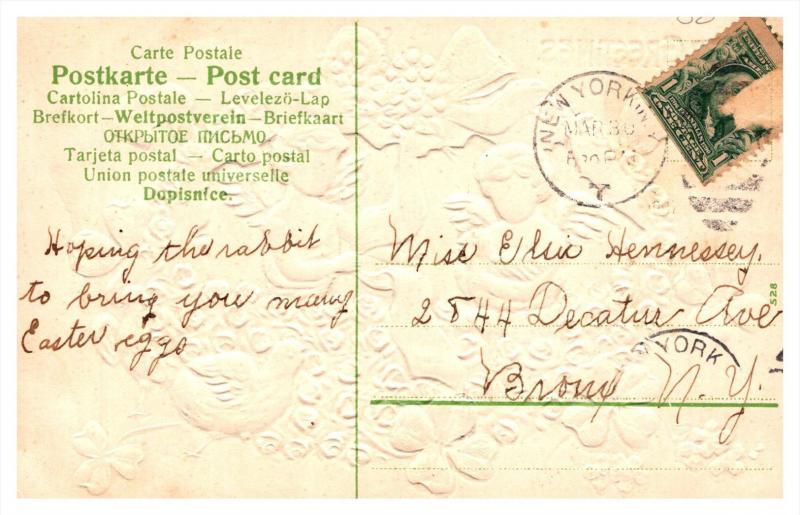 Carte Postale
Postkarte — Post card
Cartolina Postale — Levelezö-Lap
Brefkort—Weltpostverein—Briefkaart
ОТКРЫТОЕ ПИСЬМО
Tarjeta postal — Carto postal
Union postale universelle
Dopisnice.
Hoping the rabbit
to bring you many
Easter eggs
NEW YORK
MAR 30
1 1
Miss Elsie Hennessey.
2844 Decatur Ave
Bronx N. Y.
528
YORK